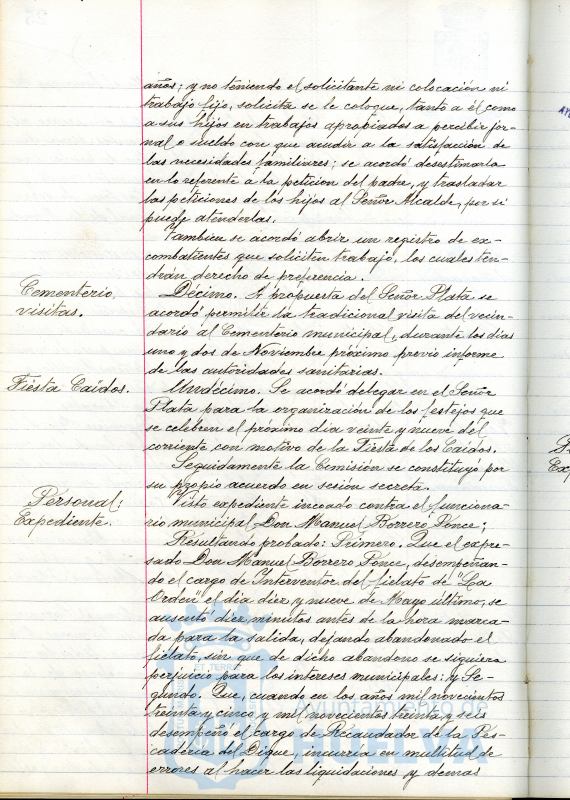 años; y no teniendo el solicitante ni colocación ni
trabajo fijo, solicita se le coloque, tanto a él como
a sus hijos en trabajos apropiados a percibir jor-
nal o sueldo con que acudir a la satisfacción de
las necesidades familiares; se acordó desestimarla
en lo referente a la petición del padre, y trasladar
las peticiones de los hijos al Señor Alcalde, por si
puede atenderlas.
También se acordó abrir un registro de ex-
combatientes que soliciten trabajo, los cuales ten-
drán derecho de preferencia.
Cementerio,
visitas.
Décimo. A propuesta del Señor Plata se
acordó permitir la tradicional visita del vecin-
dario al Cementerio municipal, durante los días
uno y dos de Noviembre próximo previo informe
de las autoridades sanitarias.
Fiesta Caídos.
Undécimo. Se acordó delegar en el Señor
Plata para la organización de los festejos que
se celebren el próximo día veinte y nueve del
corriente con motivo de la Fiesta de los Caídos.
Seguidamente la Comisión se constituyó por
su propio acuerdo en sesión secreta.
Personal:
Expediente.
Visto expediente incoado contra el funciona-
rio municipal Don Manuel Borrero Ponce;
Resultando probado: Primero. Que el expre-
sado Don Manuel Borrero Ponce, desempeñan-
do el cargo de Interventor del fielato de "La
Orden" el día diez y nueve de Mayo último, se
ausentó diez minutos antes de la hora marca-
da para la salida, dejando abandonado el
fielato, sin que de dicho abandono se siguiera
perjuicio para los intereses municipales; y Se-
gundo. Que, cuando en los años mil novecientos
treinta y cinco y mil novecientos treinta y seis
desempeñó el cargo de Recaudador de la Pes-
cadería del Dique, incurría en multitud de
errores al hacer las liquidaciones y demás
Ayuntamiento de